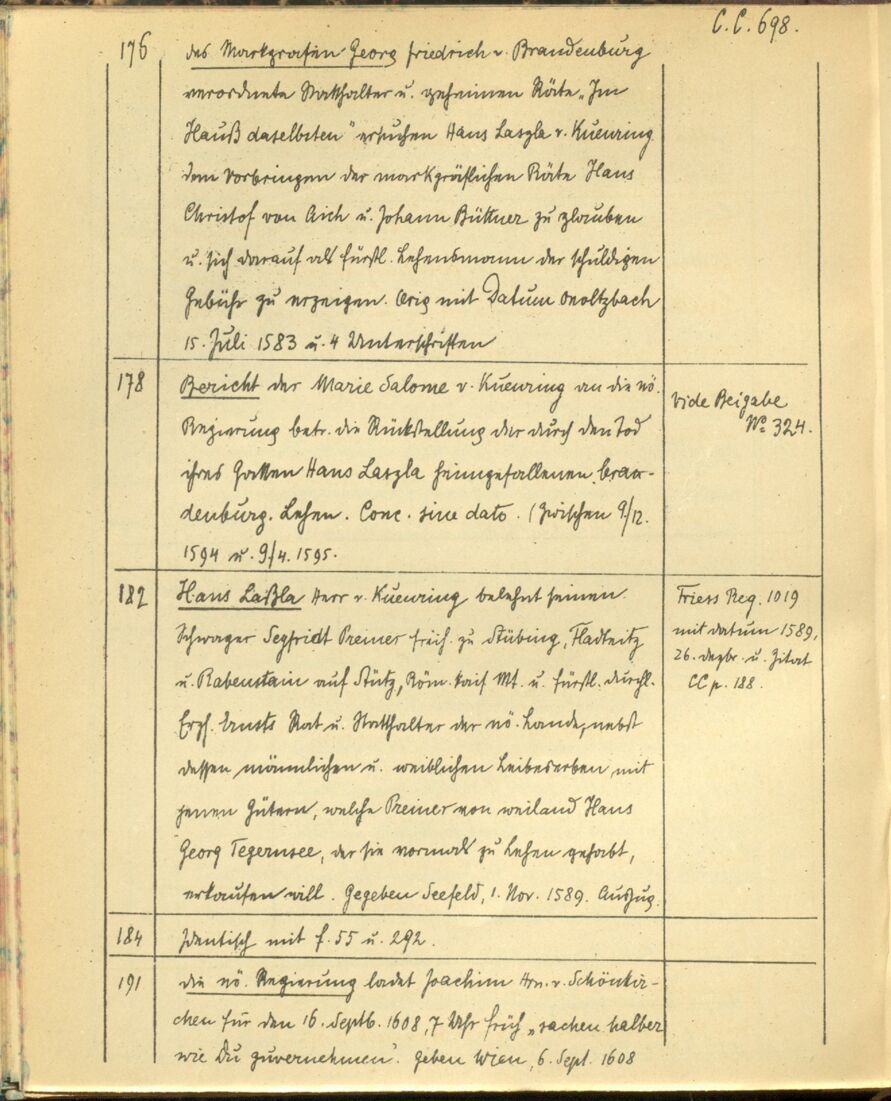 C. C. 698.
176 des Markgrafen Georg Friedrich v. Brandenburg
verordnete Statthalter u. geheimen Räte „Im
Hauß daselbsten" ersuchen Hans Laszla v. Kuenring
dem Vorbringen der markgräflichen Räte Hans
Christof von Aich u. Johann Büttner zu glauben
u. sich darauf als fürstl. Lehensmann der schuldigen
Gebühr zu erzeigen. Orig mit Datum Onoltzbach
15. Juli 1583 u. 4 Unterschriften
178 Bericht der Marie Salome v. Kuenring an die nö.
Regierung betr. die Rückstellung der durch den Tod
ihres Gatten Hans Laszla heimgefallenen bran-
denburg. Lehen. Conc. sine dato. (Zwischen 9/12.
1594 u. 9/4. 1595.
vide Beigabe
No 324.
182 Hans Laßla Herr v. Kuenring belehnt seinen
Schwager Segfridt Preiner freih. zu Stübing, Fladnitz
u. Rabenstain auf Stütz, Röm. kais Mt. u. fürstl. durchl.
Erzh. Ernsts Rat u. Statthalter der nö. Lande, nebst
dessen männlichen u. weiblichen Leibeserben mit
jenen Gütern, welche Preiner von weiland Hans
Georg Tegernsee, der sie vormals zu Lehen gehabt,
erkaufen will. Gegeben Seefeld, 1. Nov. 1589. Auszug.
Friess Reg. 1019
mit datum 1589,
26. dezbr. u. Zitat
CC p. 188.
184 Identisch mit f. 55 u. 292.
191 die nö. Regierung ladet Joachim Hrn. v. Schönkir-
chen für den 16. Septb. 1608, 7 Uhr früh „sachen halber
wie Du zuvernehmen". Geben Wien, 6. Sept. 1608